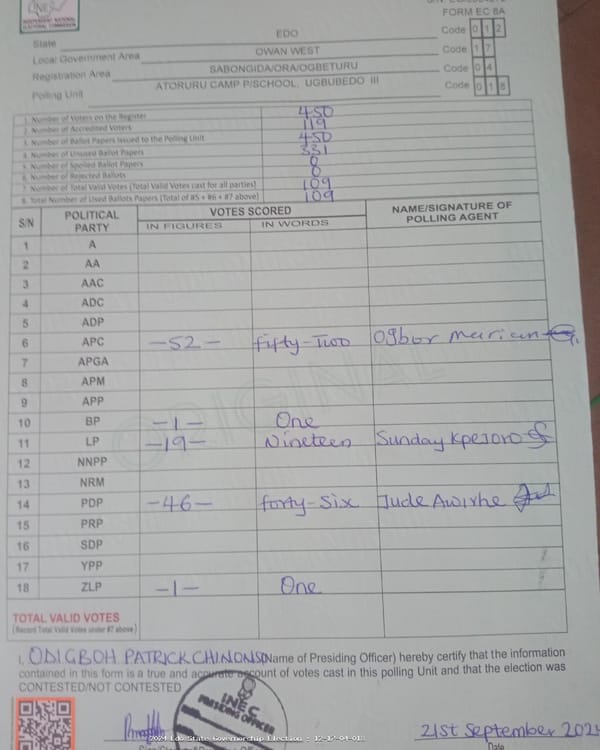 INEC
INDEPENDENT NATIONAL ELECTORAL COMMISSION
FORM EC 8A
State EDO Code 0 1 2
Local Government Area OWAN WEST Code 1 7
Registration Area SABONGIDA/ORA/OGBETURU Code 0 4
Polling Unit ATORURU CAMP P/SCHOOL, UGBUBEDO III Code 0 1 8
1. Number of Voters on the Register 450
2. Number of Accredited Voters 119
3. Number of Ballot Papers Issued to the Polling Unit 450
4. Number of Unused Ballot Papers 331
5. Number of Spoiled Ballot Papers 0
6. Number of Rejected Ballots 0
7. Number of Total Valid Votes (Total Valid Votes cast for all parties) 109
8. Total Number of Used Ballots Papers (Total of #5 + #6 + #7 above) 109
S/N POLITICAL PARTY VOTES SCORED NAME/SIGNATURE OF POLLING AGENT
IN FIGURES IN WORDS
1 A
2 AA
3 AAC
4 ADC
5 ADP
6 APC -52- fifty-Two Ogbor Marian
7 APGA
8 APM
9 APP
10 BP -1- One
11 LP -19- Nineteen Sunday Kpesoro
12 NNPP
13 NRM
14 PDP -46- forty-Six Jude Awirhe
15 PRP
16 SDP
17 YPP
18 ZLP -1- One
ORIGINAL
TOTAL VALID VOTES
(Record Total Valid Votes under #7 above)
I, ODIGBOH PATRICK CHINONSO (Name of Presiding Officer) hereby certify that the information
contained in this form is a true and accurate account of votes cast in this polling Unit and that the election was
CONTESTED/NOT CONTESTED
INEC
PRESIDING OFFICER
2024 Edo State Governorship Election - 12-17-04-018
21st September 202
Date